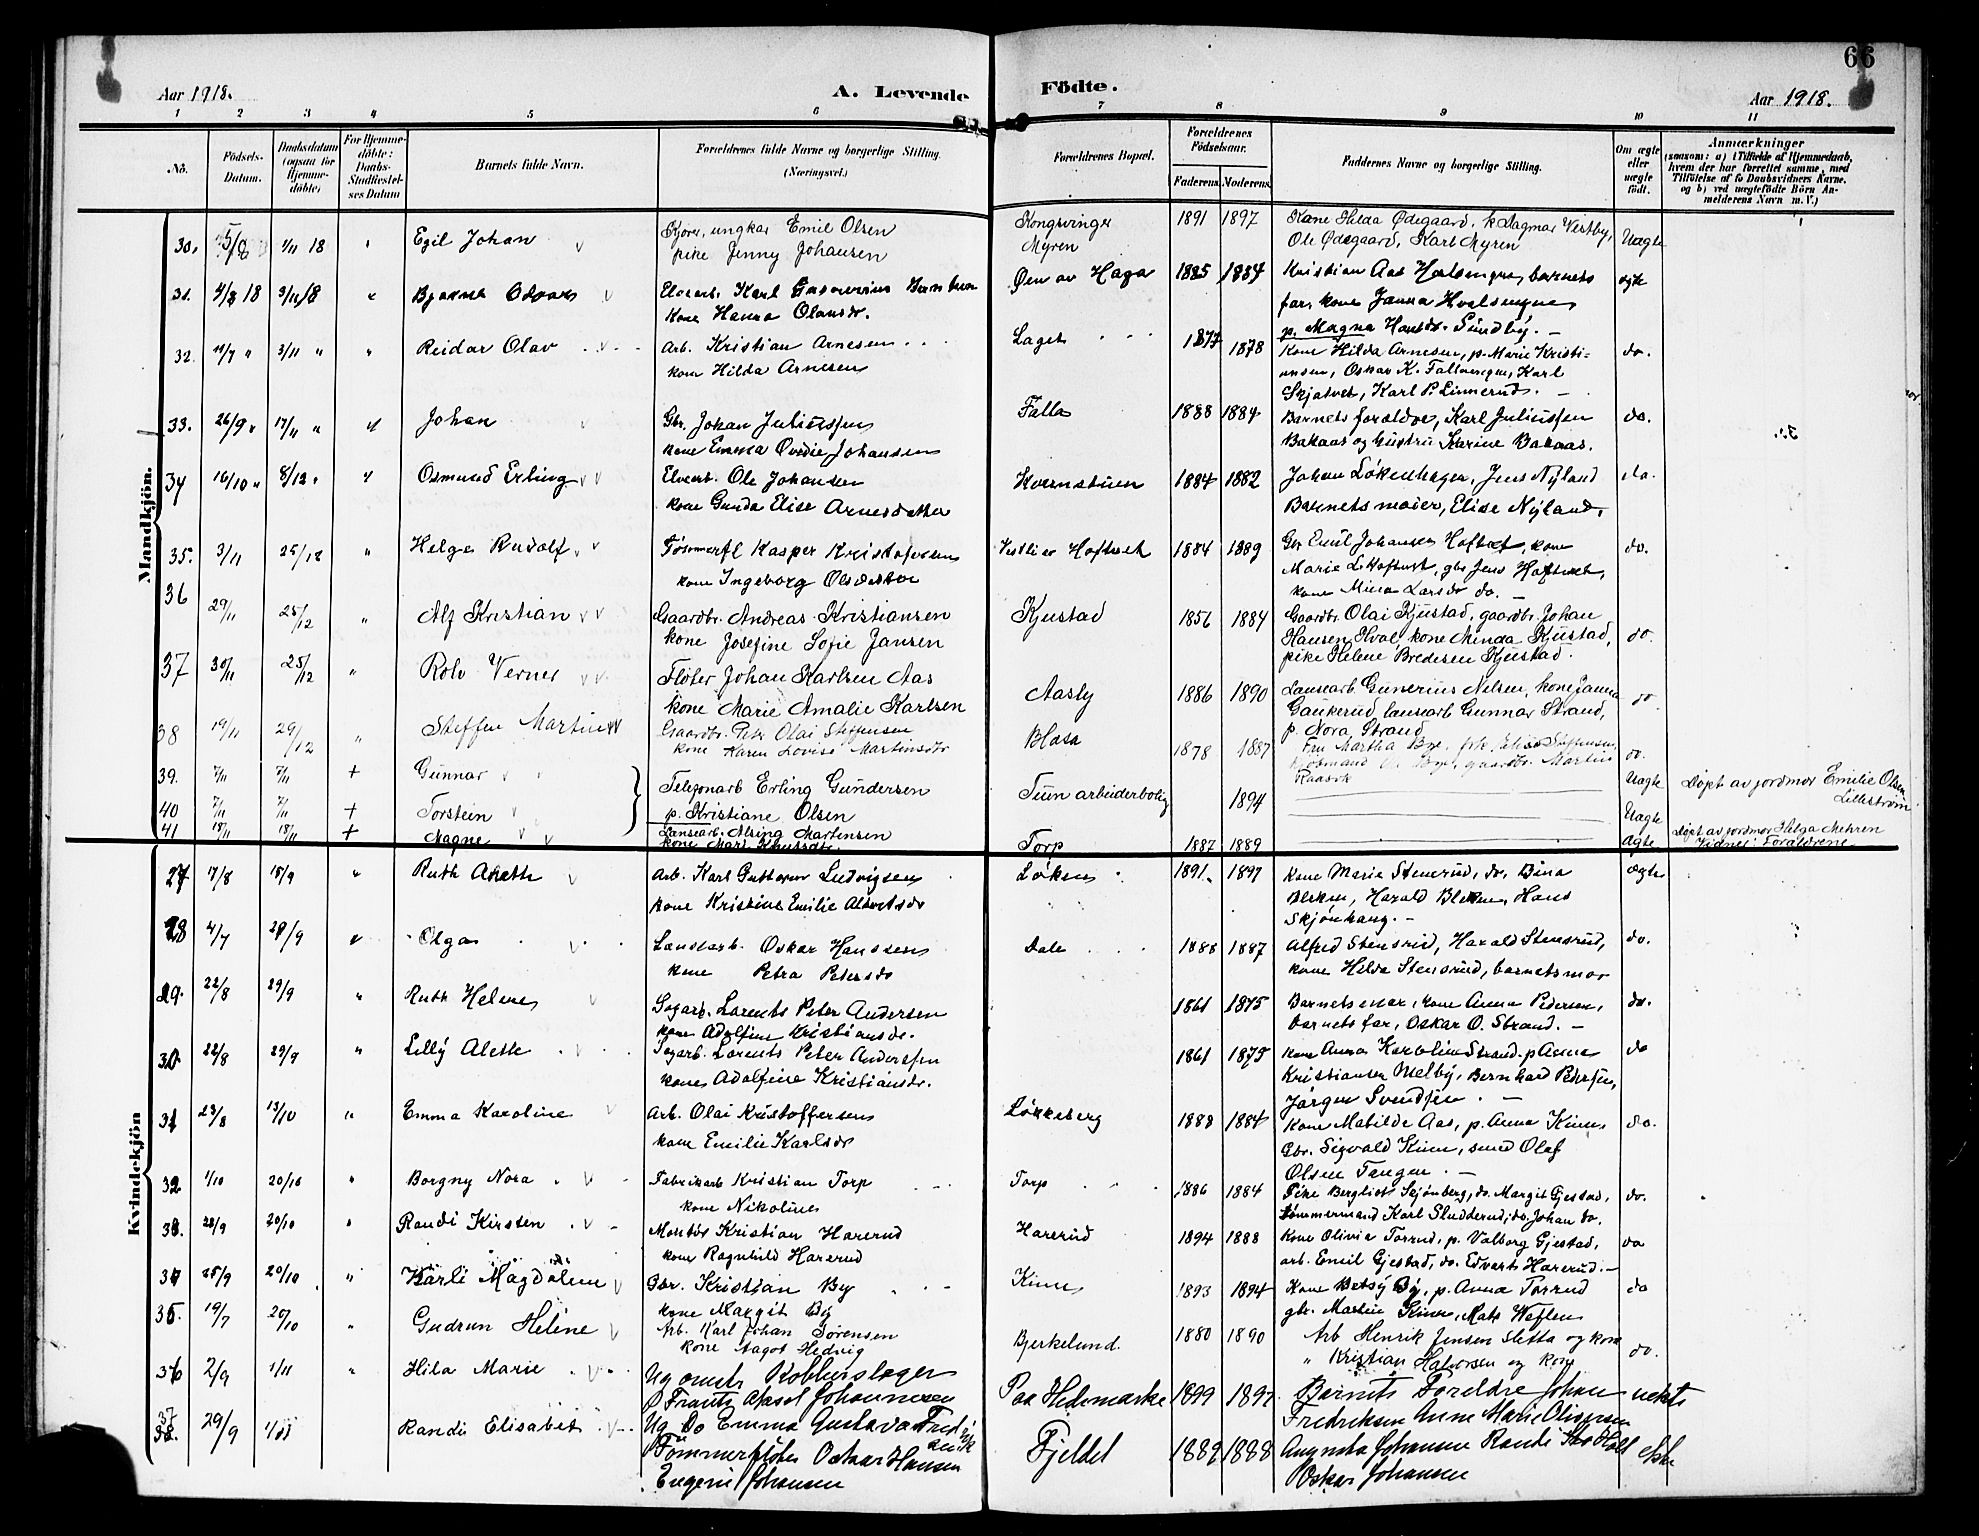 66
Aar 1918. A. Levende Födte. Aar 1918.
1 2 3 4 5 6 7 8 9 10 11
No. Födsels-Datum. Daabsdatum (ogsaa for Hjemmedöbte) For Hjemmedöbte: Daabs-Stadfæstelses Datum Barnets fulde Navn. Forældrenes fulde Navne og borgerlige Stilling. (Næringsvei.) Forældrenes Bopæl. Forældrenes Födselsaar. Faderens. Moderens. Faddernes Navne og borgerlige Stilling. Om ægte eller uægte födt. Anmærkninger (saasom: a) i Tilfælde af Hjemmedaab, hvem der har forrettet samme, med Tilföielse af to Daabsvidners Navne, og b) ved uægtefödte Börn Anmelderens Navn m. V.)
Mandkjön.
30. 5/8 1/11 18 " Egil Johan ungkar Emil Olsen Kongsvinger 1891 1897 Kone Hilda Ødegaard, Dagmar Vestby, Uægte
pike Jenny Johansen Myren Ole Ødegaard, Karl Myren
31. 4/8 18 3/11 18 " Bjarne Karl Øen av Haga 1885 1884 Kristian Aas barnets ægte
kone Hanna Olausdr. far, kone Janna
p. Magna Sundby. -
32. 11/7 " 3/11 " " Reidar Olav Arb. Kristian Arnesen Laget 1877 1878 Kone Hilda Arnesen, p. Marie Kristi= do.
kone Hilda Arnesen ansen, Oskar K. Karl
Karl P. Linnerud. -
33. 26/9 " 17/11 " " Johan Gbr. Johan Juliussen Falla 1888 1884 Barnets foraldre, Karl Juliussen do.
kone Emma Johansen Bakaas og hustru Karine Bakaas.
34 16/10 " 8/12 " " Osmund Erling Elvearb. Ole Johansen Kvernstuen 1884 1882 Johan Løkenhagen, Jens Nyland do.
kone Gunda Elise Arnesdatter Barnets moder, Elise Nyland.
35. 3/11 25/12 " Helge Rudolf Tømmerfl Kasper Kristofersen Vestlier Hoftvet 1884 1889 Gbr Emil Johansen Hoftvet, kone do.
kone Ingeborg Olsdatter Marie L. Hoftvet, gbr Jens Hoftvet,
kone Mina Larsdr do. -
36 29/11 25/12 " Alf Kristian Gaardbr. Andreas Kristiansen Kjustad 1856 1884 Gaardbr. Olai Kjustad, gaardbr. Johan do.
kone Josefine Sofie Jansen Hansen Hval, kone Minda Kjustad,
pike Helene Bredesen Kjustad.
37 30/11 25/12 " Rolv Verner Fløter Johan Karlsen Aas Aasly 1886 1890 Lansearb. Gunerius Nilsen, kone Janna do.
kone Marie Amalie Karlsen Gaukerud, lansearb Gunnar Strand,
p. Nora Strand
38 19/11 29/12 " Steffen Martin Gaardbr. Olai Steffensen Blasa 1878 1887 Fru Martha Bye, do.
kone Karen Lovise Martinsdr Kjøbmand Bye, gaardbr. Martin
39. 7/11 7/11 + Gunnar Telefonarb Erling Gundersen Tuen arbeiderbolig 1894 Uægte Døpt av jordmor Emilie Olsen
40 7/11 7/11 + Torstein p. Kristiane Olsen Uægte Lillestrøm
41 18/11 18/11 + Magne Lansearb. Alsing Martensen Torp 1887 1889 Ægte Døpt av jordmor Helga Mehren
kone Marie Knutsdtr. Vidner: Foraldrene
Kvindekjön
27 17/8 15/9 " Ruth Anette Arb. Karl Guttorm Ludvigsen Løken 1891. 1897 Kone Marie Stenerud, do. Bina ægte
kone Kristine Emilie Harald Hans
Skjønhaug. -
28 4/7 29/9 " Olga Lansearb. Oskar Hanssen Dale 1888 1887 Alfred Stensrud, Harald Stensrud, do.
kone Petra Petersdr kone Hilda Stensrud, barnets mor
29. 22/8 29/9 " Ruth Helene Sagarb. Lorents Peter Andersen 1861 1875 Barnets mor, kone Anna Pedersen, do.
kone Adolfine Kristiansdr. barnets far, Oskar O. Strand. -
30. 22/8 29/9 " Lilly Alette Sagarb. Lorents Peter Anderssen 1861 1875 kone Anna Karoline Strand, p Anna do
kone Adolfine Kristiansdr. Kristiansen Melby, Bernhard Petersen,
Jørgen Svendsen. -
31 23/8 13/10 " Emma Karoline Arb. Olai Kristoffersen Løkkeberg 1888 1884 Kone Matilde Aas, p. Anna Kinn, do.
kone Emilie Karlsdr Gbr. Sigvald Kinn, smed Olaf
Olsen Tangen. -
32 1/10 20/10 " Borgny Nora Fabrikarb Kristian Torp Torp 1886 1884 Pike Bergliot Skjønberg, do. Margit Gjestad, do.
kone Nikoline Tømmermand Karl Sludderud, do. Johan do.
33. 28/9 20/10 " Randi Kirsten Montør Kristian Harerud Harerud 1894 1888 Kone Olivia Torrud, p. Valborg Gjestad, do
kone Ragnhild Harerud arb. Emil Gjestad, do. Edvart Harerud. -
34 25/9 20/10 " Kärli Magdalene Gbr. Kristian By Kinn 1893 1894 Kone Betsy By, p. Anna Torrud do
kone Margit By gbr. Martin Kinn, Mats Weflen
35. 19/7 20/10 " Gudrun Heline Arb. Karl Johan Sørensen Bjerkelund. 1880 1890 Arb Henrik Jensen Sletta og kone do.
kone Aagot Hedvig " Kristian Halvorsen og kone
36 2/9 1/11 " Hila Marie Ug Kobberslager Paa Hedemarken 1899 1897 Barnets Foreldre Johan uekte
Frantz Johannesen Fredriksen Anne Marie Olivesen
Ug Do Emma Gustava
37 29/9 Randi Elisabet Tømmerfløter Oskar Hansen Fjeldet 1889 1888 Augusta Johansen Randi ekte
38. Eugenie Johansen Oskar Johansen